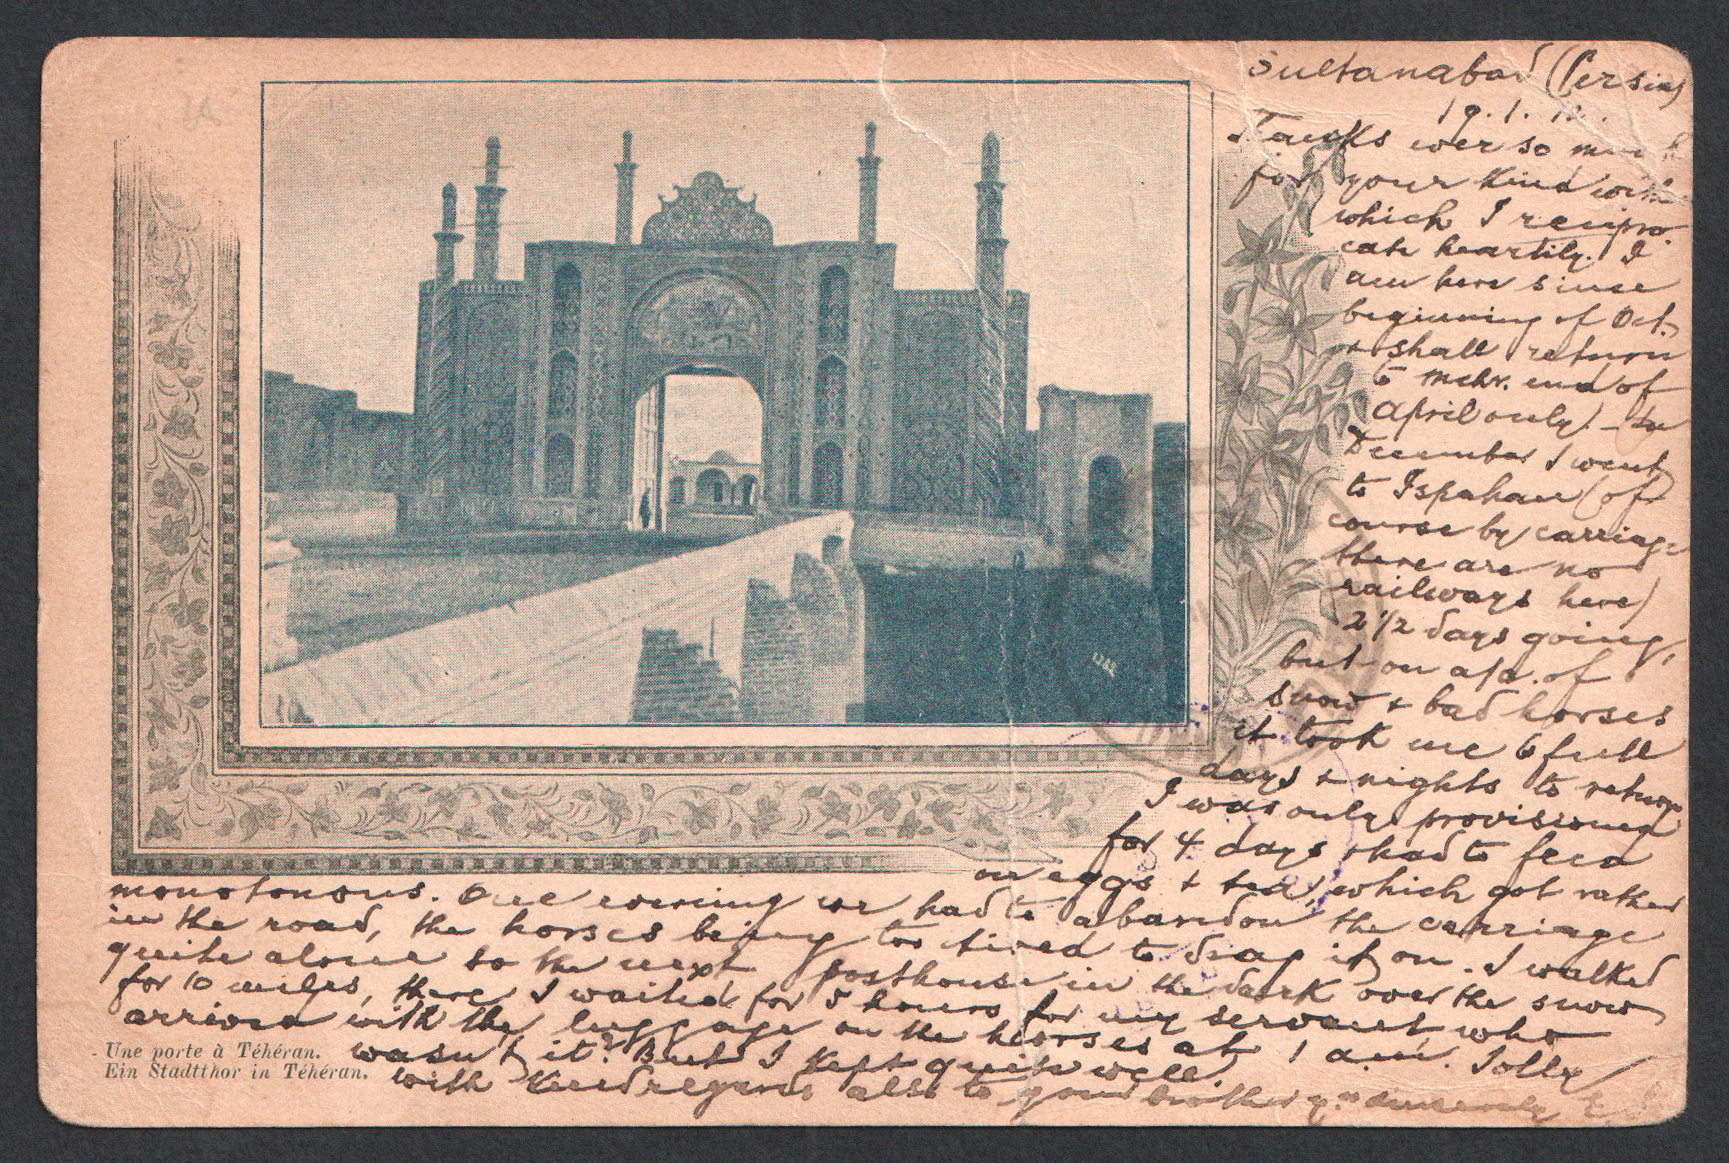 Sultanabad (Persia)
19.1.12.
Thanks ever so much
for your kind wishes
which I recipro-
cate heartily. I
am here since
beginning of Oct.
& shall return
to Mchr. end of
April only. - In
December I went
to Ispahan (of
course by carriage
there are no
railways here)
2 1/2 days going,
but on a/c. of
snow & bad horses
it took me 6 full
days & nights to return
I was only provisioned
for 4 days & had to feed
on eggs & tea, which got rather
monotonous. One evening we had to abandon the carriage
in the road, the horses being too tired to drag it on. I walked
quite alone to the next posthouse in the dark over the snow
for 10 miles, there I waited for 5 hours for my servant who
arrived with the luggage on the horses at 1 a.m. Jolly
wasn't it? But I kept quite well.
with kind regards also to your brother y." sincerely
Une porte à Téhéran.
Ein Stadtthor in Téhéran.
1285